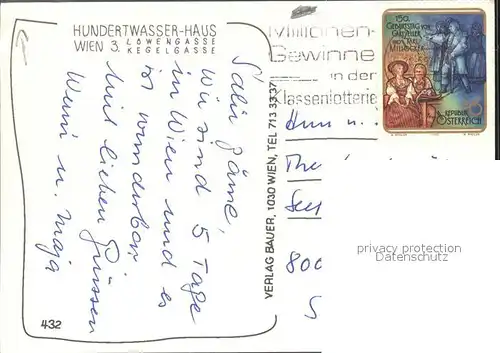 HUNDERTWASSER-HAUS
WIEN 3. LÖWENGASSE
KEGELGASSE
Millionen-
Gewinne
in der
Klassenlotterie
150.
GEBURTSTAG VON
CARL ZELLER
UND CARL
MILLÖCKER
REPUBLIK
ÖSTERREICH
wir sind 5 Tage
in Wien und es
ist wunderbar.
Mit lieben Grüssen
u. Maja
VERLAG BAUER, 1030 WIEN, TEL 713 33 37
432
Herrn u.
The
800
S
privacy protection
Datenschutz